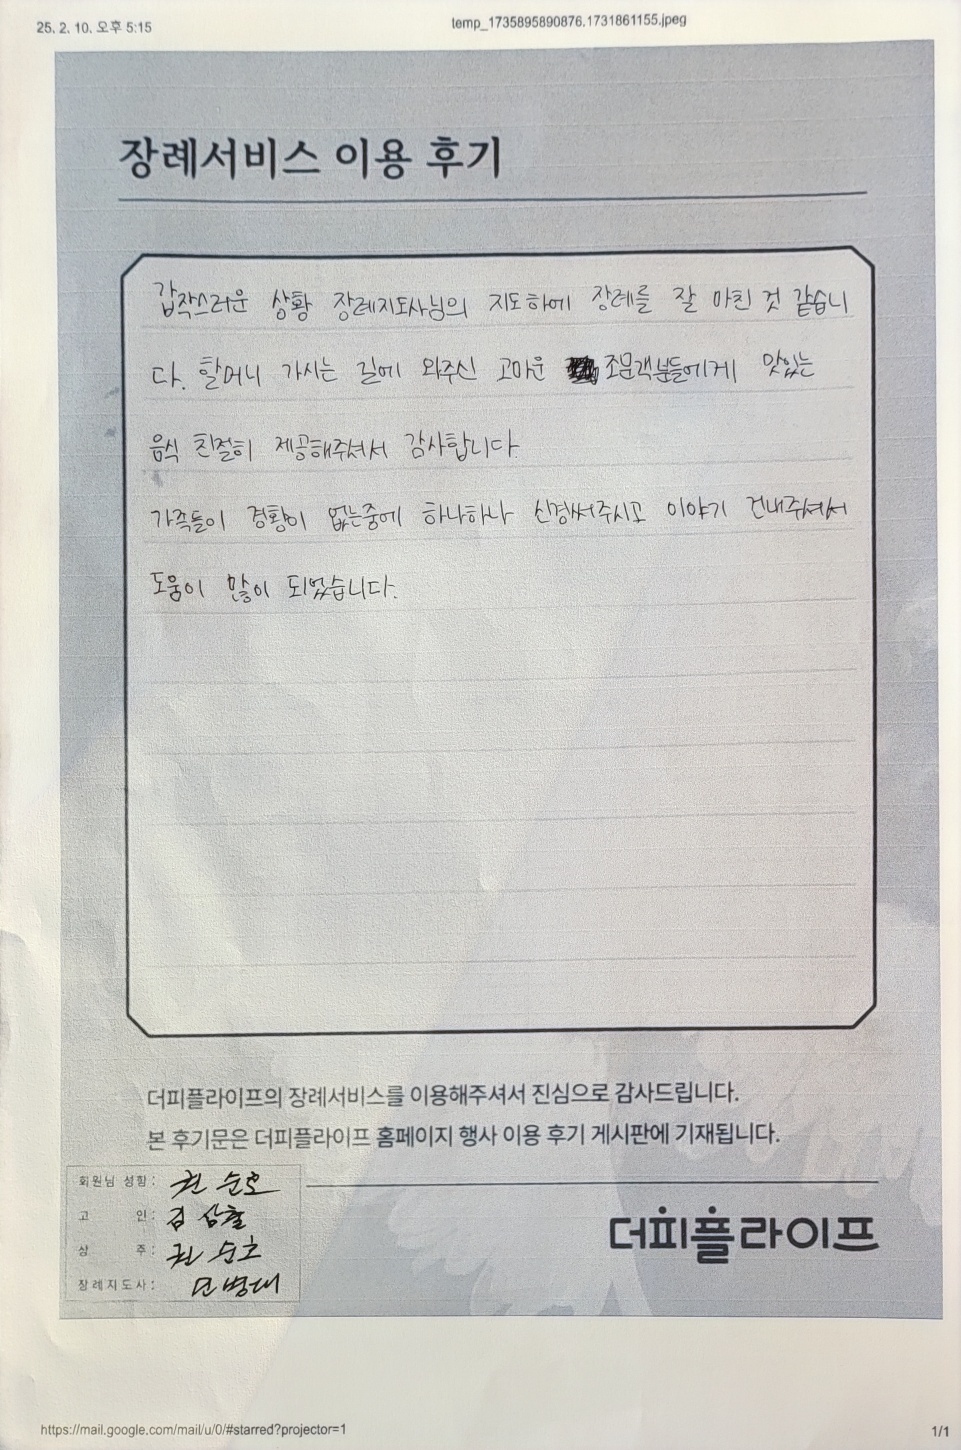 25. 2. 10. 오후 5:15
temp_1735895890876.1731861155.jpeg
장례서비스 이용 후기
갑작스러운 상황 장례지도사님의 지도하에 장례를 잘 마친 것 같습니
다. 할머니 가시는 길에 와주신 고마운 조문객분들에게 맛있는
음식 친절히 제공해주셔서 감사합니다
가족들이 경황이 없는중에 하나하나 신경써주시고 이야기 건내주셔서
도움이 많이 되었습니다.
더피플라이프의 장례서비스를 이용해주셔서 진심으로 감사드립니다.
본 후기문은 더피플라이프 홈페이지 행사 이용 후기 게시판에 기재됩니다.
회원님 성함 : 권순호
고 인 : 김삼출
상 주 : 권순호
장례지도사 : 병대
더피플라이프
https://mail.google.com/mail/u/0/#starred?projector=1
1/1